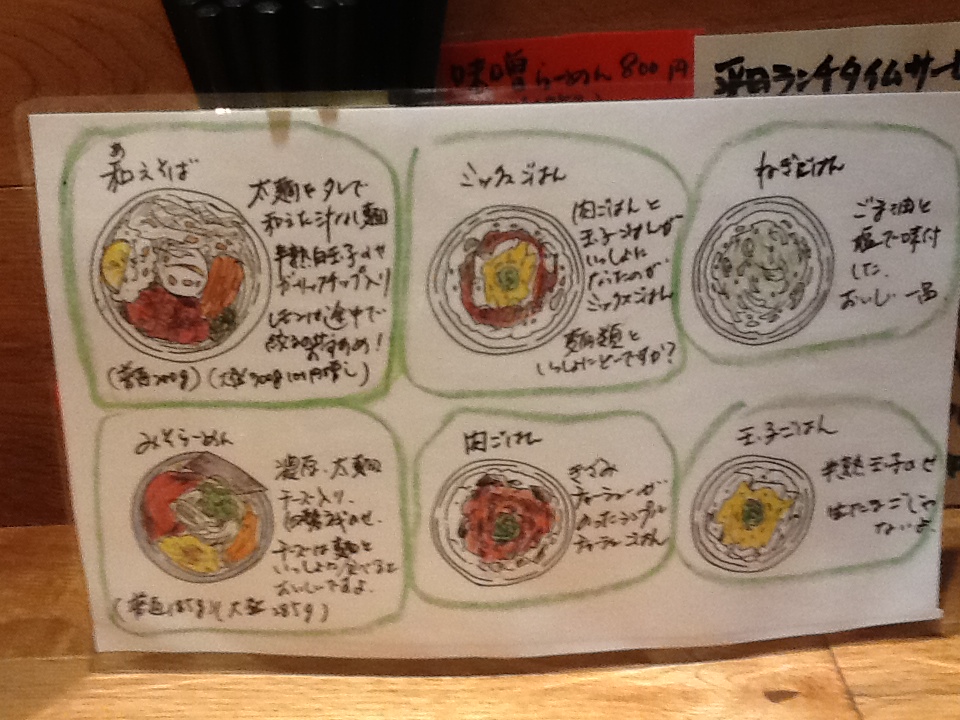 味噌らーめん 800円
平日ランチタイムサービ
あ
和えそば
太麺をタレで
和えた汁ナシ麺
半熟玉子のせ
ガーリックチップ入り
レモンは途中で
絞るのおすすめ!
(普通200g)(大盛300g 101円増し)
ミックスごはん
肉ごはんと
玉子ごはんが
いっしょに
なったのが
ミックスごはん
麺類と
いっしょにどーですか?
ねぎごはん
ごま油と
塩で味付
した。
おいしい一品
みそらーめん
濃厚、太麺
チーズ入り、
のせ、
チーズは麺と
いっしょに食べると
おいしいですよ。
(普通185g)(大盛285g)
肉ごはん
きざみ
チャーシューが
のったシンプル
チャーシューごはん
玉子ごはん
半熟玉子のせ
生たまごじゃ
ないよ。